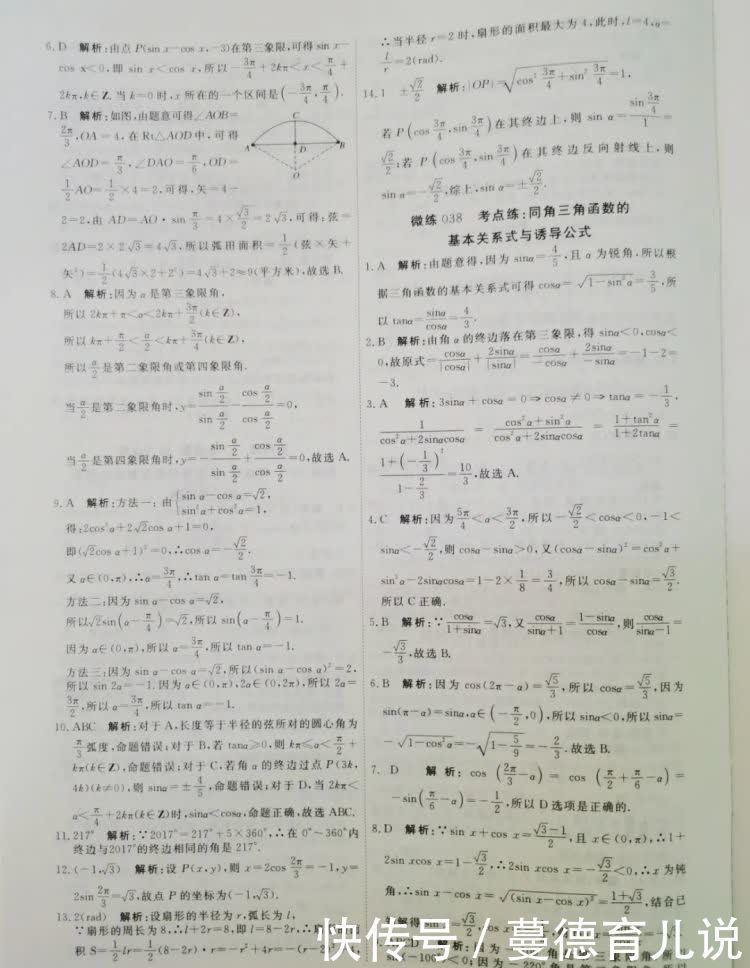 6. D 解析:由点 P(sin x－cos x,－3)在第三象限,可得 sin x－
cos x<0,即 sin x<cos x,所以－3π/4＋2kπ<x<π/4＋
2kπ,k∈Z. 当 k＝0 时,x 所在的一个区间是(－3π/4,π/4).
7. B 解析:如图,由题意可得∠AOB＝
2π/3,OA＝4,在 Rt△AOD 中,可得
∠AOD＝π/3,∠DAO＝π/6,OD＝
1/2 AO＝1/2×4＝2,可得,矢＝4－
2＝2,由 AD＝AO·sin π/3＝4×√3/2＝2√3,可得:弦＝
2AD＝2×2√3＝4√3,所以弧田面积＝1/2(弦×矢＋
矢²)＝1/2(4√3×2＋2²)＝4√3＋2≈9(平方米),故选 B.
A
C
B
D
O
8. A 解析:因为 α 是第三象限角,
所以 2kπ＋π<α<2kπ＋3π/2(k∈Z),
所以 kπ＋π/2<α/2<kπ＋3π/4(k∈Z),
所以 α/2 是第二象限角或第四象限角.
当 α/2 是第二象限角时,y＝sin α/2 / sin α/2 － cos α/2 / cos α/2＝0,
当 α/2 是第四象限角时,y＝－sin α/2 / sin α/2＋cos α/2 / cos α/2＝0,故选 A.
9. A 解析:方法一:由{sin α－cos α＝√2,
sin²α＋cos²α＝1,
得:2cos²α＋2√2cos α＋1＝0,
即(√2cos α＋1)²＝0,∴cos α＝－√2/2.
又 α∈(0,π),∴α＝3π/4,∴tan α＝tan 3π/4＝－1.
方法二:因为 sin α－cos α＝√2,
所以√2sin(α－π/4)＝√2,所以 sin(α－π/4)＝1.
因为 α∈(0,π),所以 α＝3π/4,所以 tan α＝－1.
方法三:因为 sin α－cos α＝√2,所以(sin α－cos α)²＝2,
所以 sin 2α＝－1. 因为 α∈(0,π),2α∈(0,2π),所以 2α＝
3π/2,所以 α＝3π/4,所以 tan α＝－1.
10. ABC 解析:对于 A,长度等于半径的弦所对的圆心角为
π/3 弧度,命题错误;对于 B,若 tanα≥0,则 kπ≤α<π/2＋
kπ(k∈Z),命题错误;对于 C,若角 α 的终边过点 P(3k,
4k)(k≠0),则 sinα＝±4/5,命题错误;对于 D,当 2kπ<
α<π/4＋2kπ(k∈Z)时,sinα<cosα,命题正确,故选 ABC.
11. 217° 解析:∵2017°＝217°＋5×360°,∴在 0°～360°内
终边与2017°的终边相同的角是 217°.
12. (－1,√3) 解析:设 P(x,y),则 x＝2cos 2π/3＝－1,y＝
2sin 2π/3＝√3,故点 P 的坐标为(－1,√3).
13. 2(rad) 解析:设扇形的半径为 r,弧长为 l,
∵扇形的周长为 8,∴l＋2r＝8,即 l＝8－2r,∴
积 S＝1/2 lr＝1/2(8－2r)·r＝－r²＋4r＝－(r－2)²
∴当半径 r＝2 时,扇形的面积最大为 4,此时,l＝4,α＝
l/r＝2(rad).
14. 1 ±√2/2 解析:|OP|＝√(cos² 3π/4＋sin² 3π/4)＝1,
若 P(cos 3π/4,sin 3π/4)在其终边上,则 sin α＝sin 3π/4 / 1＝
√2/2;若 P(cos 3π/4,sin 3π/4)在其终边反向射线上,则
sin α＝－√2/2,综上,sin α＝±√2/2.
微练 038 考点练:同角三角函数的
基本关系式与诱导公式
1. A 解析:由题意得,因为 sinα＝4/5,且 α 为锐角,所以根
据三角函数的基本关系式可得 cosα＝√(1－sin²α)＝3/5,所
以 tanα＝sinα/cosα＝4/3.
2. B 解析:由角 α 的终边落在第三象限,得 sinα<0,cosα<
0,故原式＝cosα/|cosα|＋2sinα/|sinα|＝cosα/－cosα＋2sinα/－sinα＝－1－2＝
－3.
3. A 解析:3sinα＋cosα＝0⇒cosα≠0⇒tanα＝－1/3,
1/(cos²α＋2sinαcosα)＝(cos²α＋sin²α)/(cos²α＋2sinαcosα)＝(1＋tan²α)/(1＋2tanα)＝
(1＋(－1/3)²)/(1－2/3)＝10/3,故选 A.
4. C 解析:因为 5π/4<α<3π/2,所以－√2/2<cosα<0,－1<
sinα<－√2/2,则 cosα－sinα>0,又(cosα－sinα)²＝cos²α＋
sin²α－2sinαcosα＝1－2×1/8＝3/4,所以 cosα－sinα＝√3/2.
所以 C 正确.
5. B 解析:∵cosα/(1＋sinα)＝√3,又 cosα/(sinα＋1)＝(1－sinα)/cosα,则 cosα/(sinα－1)＝
－√3/3,故选 B.
6. B 解析:因为 cos(2π－α)＝√5/3,所以 cosα＝√5/3,因为
sin(π－α)＝sinα,α∈(－π/2,0),所以 sinα<0,所以 sinα＝
－√(1－cos²α)＝－√(1－5/9)＝－2/3.故选 B.
7. D 解析:cos(2π/3－α)＝cos(π/2＋π/6－α)＝
－sin(π/6－α)＝－1/2,所以 D 选项是正确的.
8. D 解析:∵sin x＋cos x＝(√3－1)/2,且 x∈(0,π),∴1＋
2sin xcos x＝1－√3/2,∴2sin xcos x＝－√3/2<0,∴x 为钝
角,∴sin x－cos x＝√(sin x－cos x)²＝(1＋√3)/2,结合已
快传号 / 蔓德育儿说